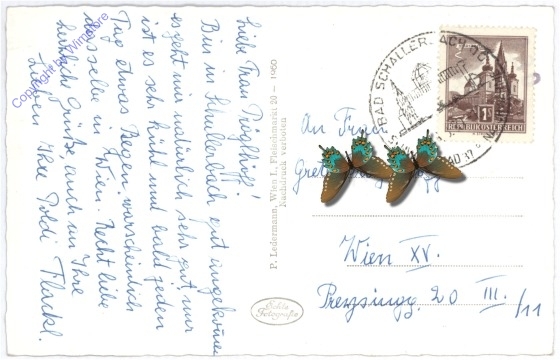 Liebe Frau
Bin in Schallerbach gut angekommen
es geht mir natürlich sehr gut, nur
ist es sehr kühl und bald jeden
Tag etwas Regen, warscheinlich
dasselbe in Wien. Recht liebe
herzliche Grüße, auch an Ihre
Lieben Ihre Poldi
P. Ledermann, Wien I., Fleischmarkt 20 – 1960
Nachdruck verboten
Echte
Fotografie
BAD SCHALLERBACH
REPUBLIK ÖSTERREICH
An Frau
Gret
Wien XV.
20 III./11
Copyright by Winstore